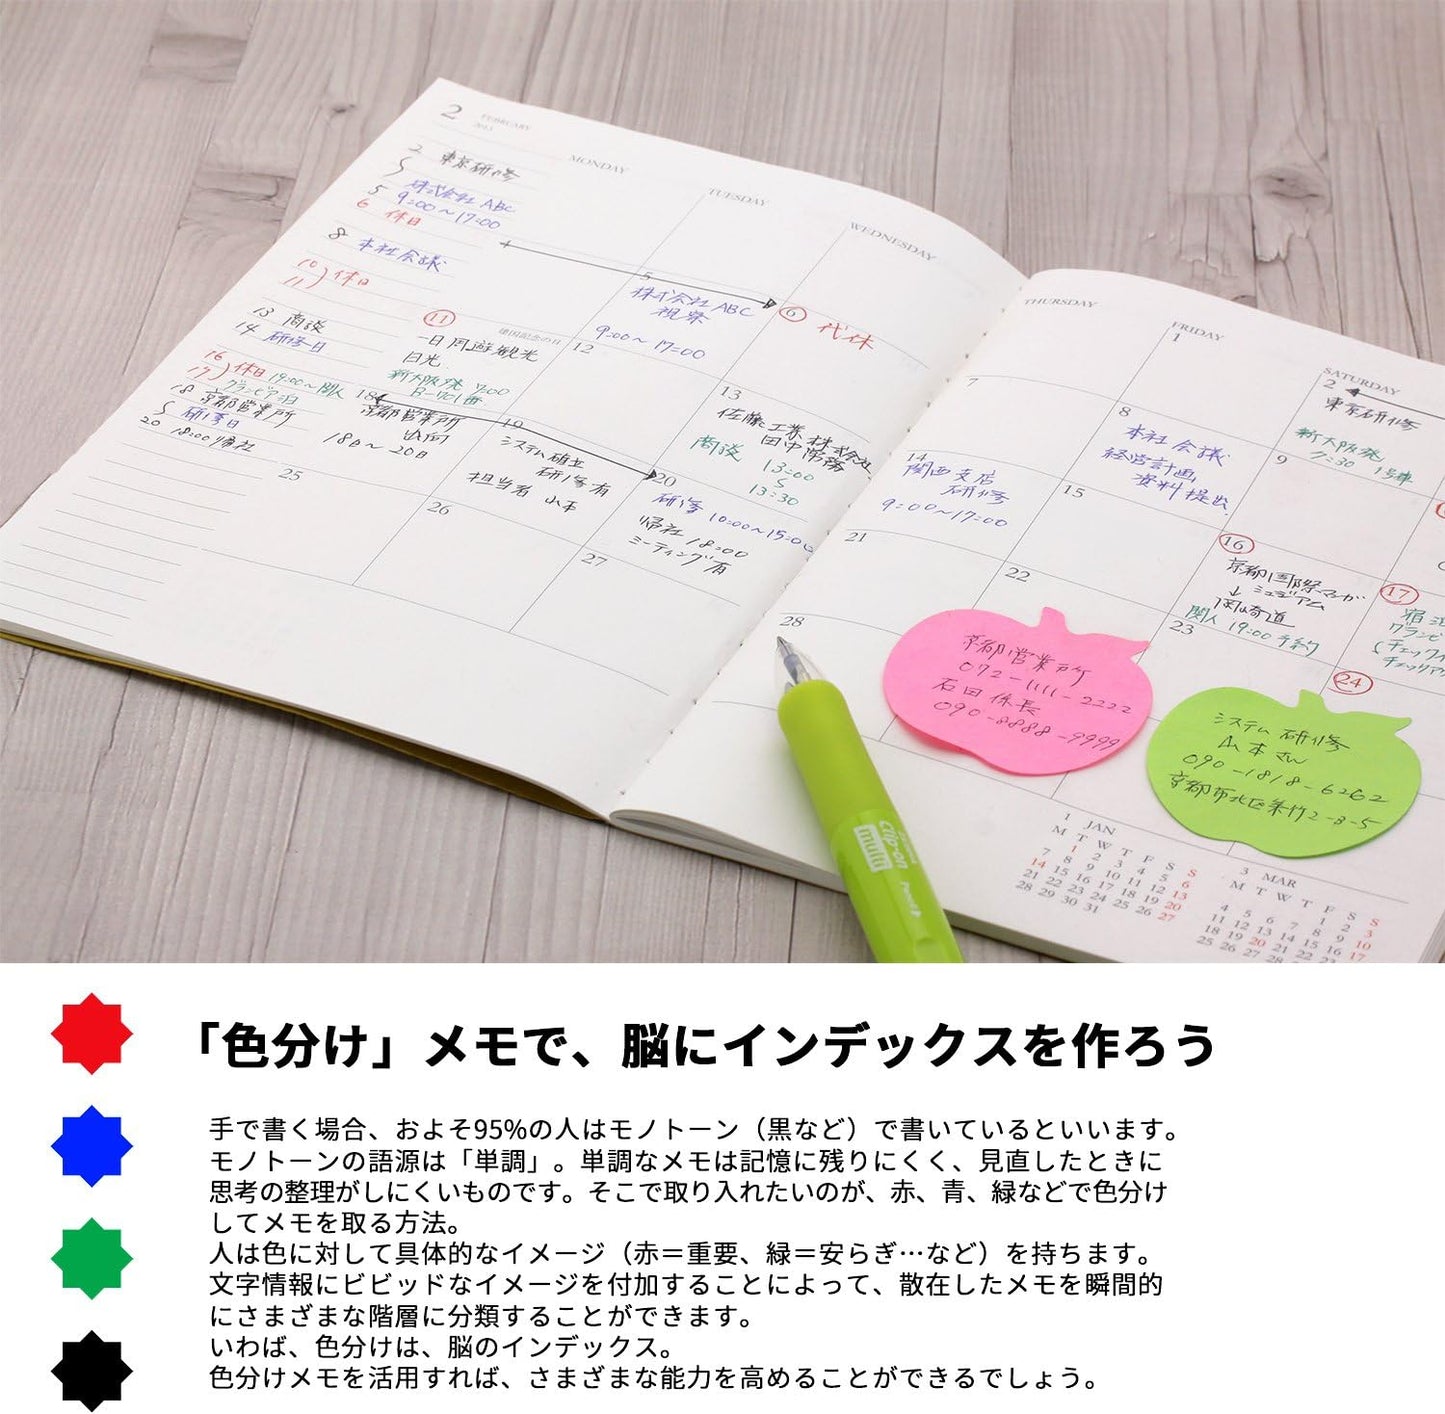 2 FEBRUARY
2013
MONDAY
TUESDAY
WEDNESDAY
THURSDAY
FRIDAY
SATURDAY
2 東京研修
5 株式会社ABC
9:00~17:00
6 休日
8 本社会議
10
11 休日
13 商談
14 研修日
16
17 休日 19:00~関人
グランビア泊
18 京都営業所
研修日
20 18:00帰社
5
株式会社ABC
視察
9:00~17:00
6 代休
7
1
2
東京研修
新大阪発
7:30 1号車
11
建国記念の日
一日周遊観光
日光
新大阪発 7:00
B-701番
12
13
佐藤工業株式会社
田中常務
商談 13:00
13:30
14
関西支店
研修
9:00~17:00
8
本社会議
経営計画
資料提出
9
15
16
京都国際マンガ
ミュージアム
↓
関人 19:00予約
17
グランビ
チェックイ
チェックア
18
京都営業所
出向
18日~20日
19
システム確立
研修有
担当者 山本
20
研修 10:00~15:00
帰社 18:00
ミーティング有
21
22
23
24
25
26
27
28
京都営業所
072-1111-2222
石田係長
090-8888-9999
システム研修
山本さん
090-1818-6262
京都市北区朱竹2-8-5
1 JAN
M T W T F S S
1 2 3 4 5 6
7 8 9 10 11 12 13
14 15 16 17 18 19 20
21 22 23 24 25 26 27
28 29 30 31
3 MAR
M T W T F S S
1 2 3
4 5 6 7 8 9 10
11 12 13 14 15 16 17
18 19 20 21 22 23
25 26 27 28
Clip-on
multi
「色分け」メモで、脳にインデックスを作ろう
手で書く場合、およそ95%の人はモノトーン（黒など）で書いているといいます。
モノトーンの語源は「単調」。単調なメモは記憶に残りにくく、見直したときに
思考の整理がしにくいものです。そこで取り入れたいのが、赤、青、緑などで色分け
してメモを取る方法。
人は色に対して具体的なイメージ（赤＝重要、緑＝安らぎ…など）を持ちます。
文字情報にビビッドなイメージを付加することによって、散在したメモを瞬間的
にさまざまな階層に分類することができます。
いわば、色分けは、脳のインデックス。
色分けメモを活用すれば、さまざまな能力を高めることができるでしょう。